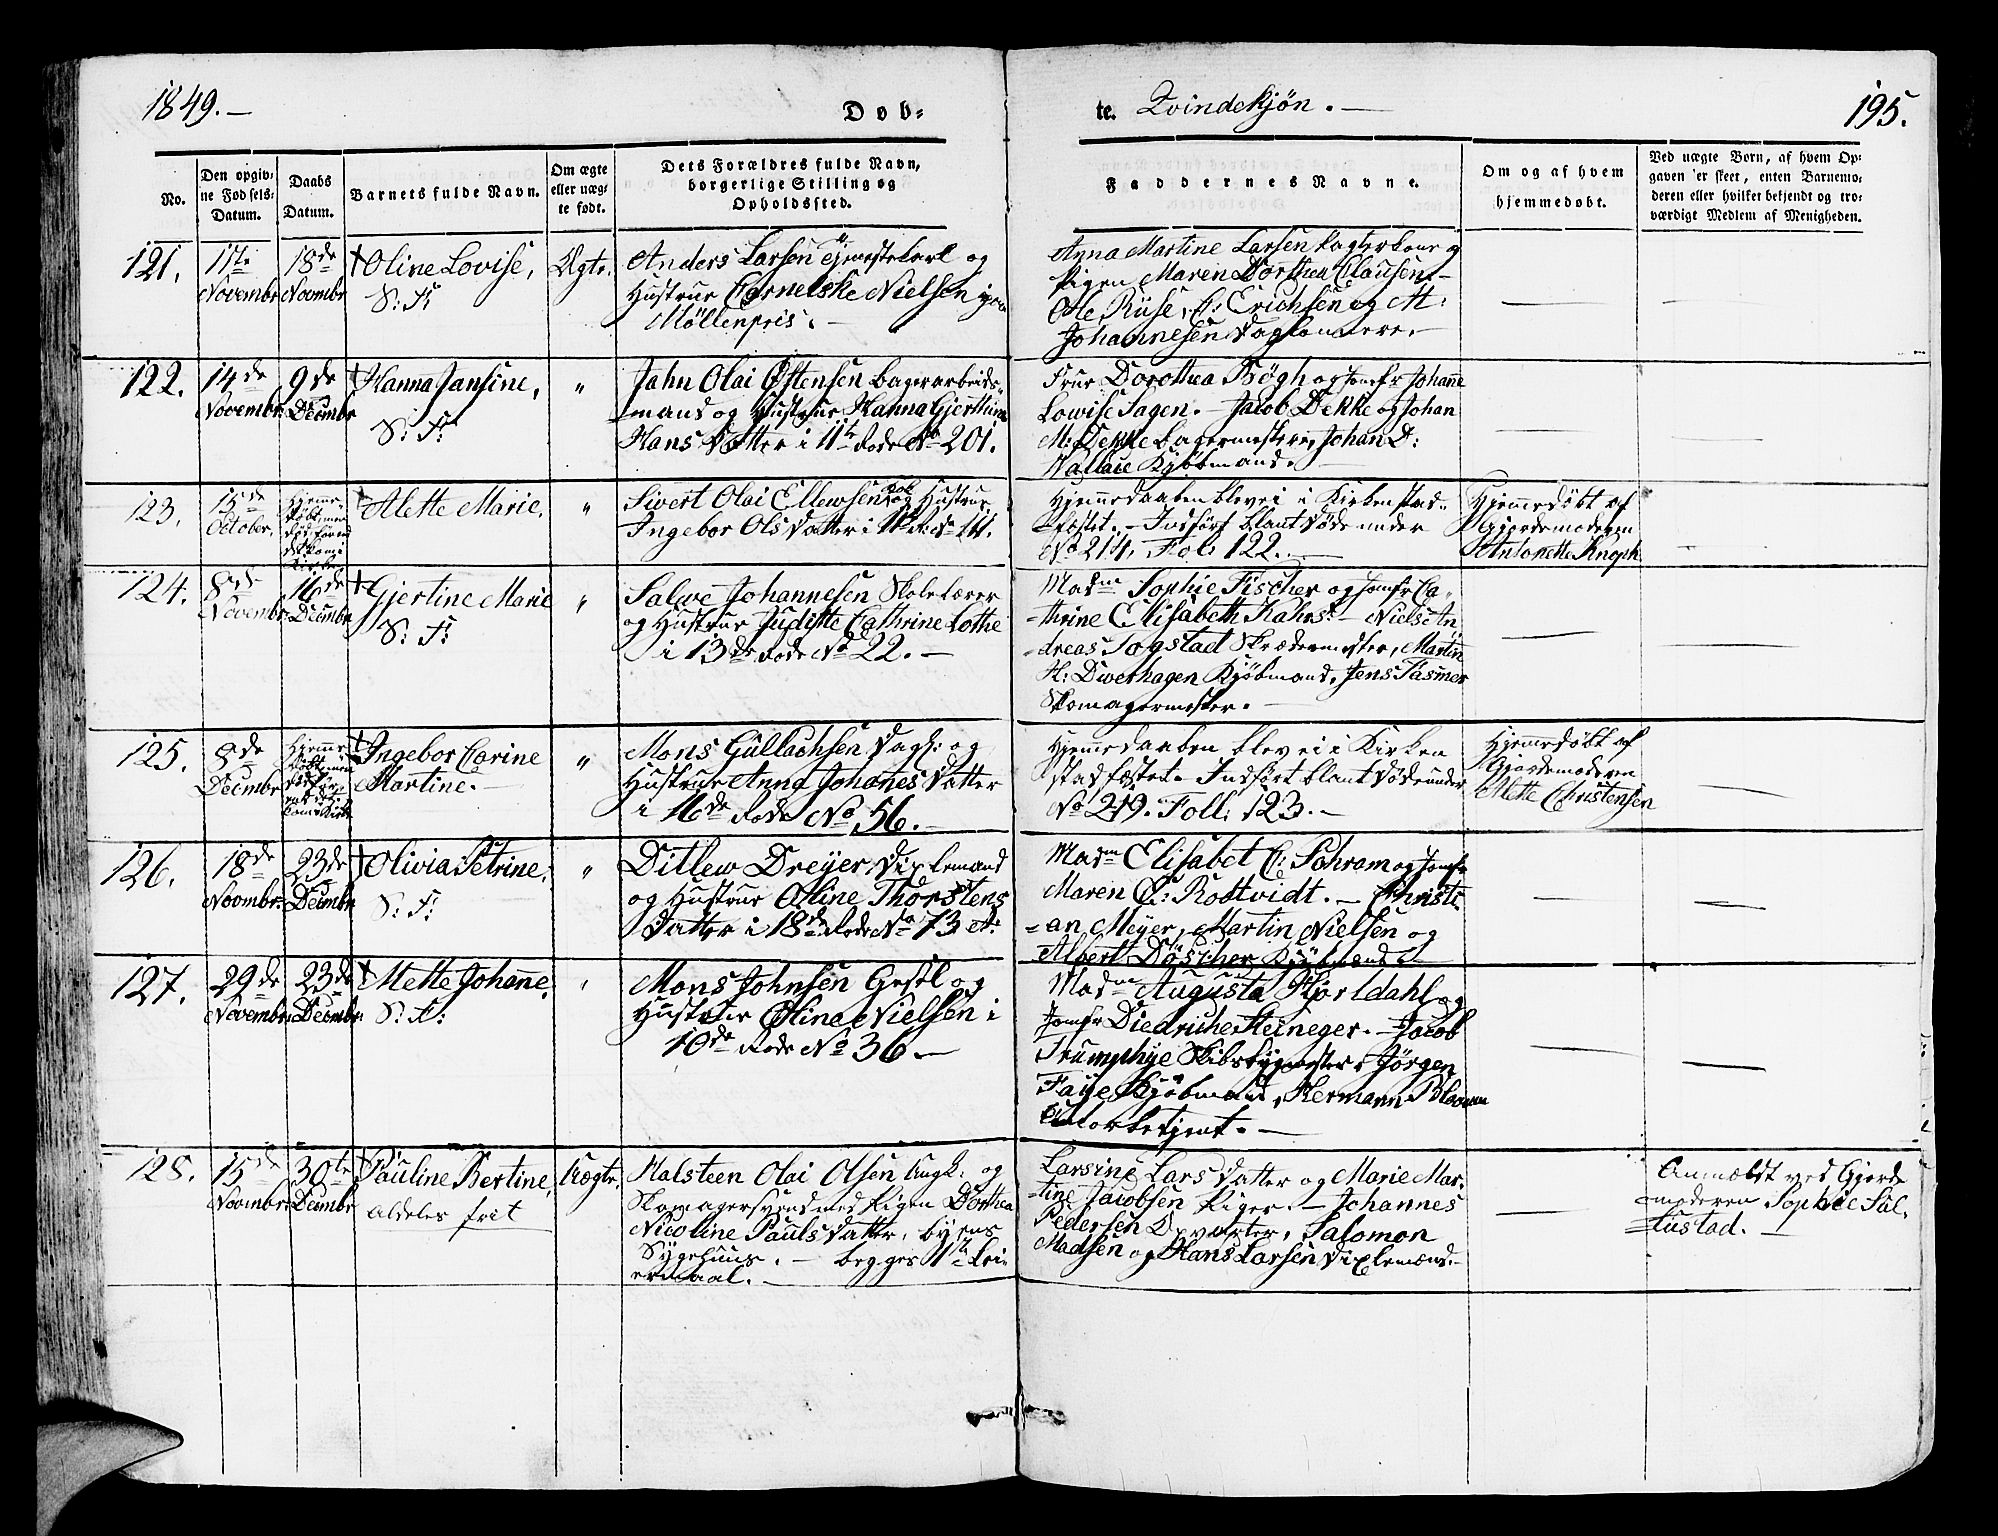 1849.—
Døb-
te. Qvindekjøn.—
195.
No.
Den opgiv-
ne Fødsels-
Datum.
Daabs
Datum.
Barnets fulde Navn.
Om ægte
eller uæg-
te født.
Dets Forældres fulde Navn,
borgerlige Stilling og
Opholdssted.
Faddernes Navne.
Om og af hvem
hjemmedøbt.
Ved uægte Børn, af hvem Op-
gaven er skeet, enten Barnemo-
deren eller hvilket bekjendt og tro-
værdigt Medlem af Menigheden.
121.
11te
Novembr
18de
Novmbr
Oline Lovise,
S: F:
Ægte.
Anders Larsen og
Hustrue Cornelske Nielsen
Møllenpris.—
Anna Martine Larsen
Pigen Maren Dorthea Clausen.—
Ole Riise, C: Erichsen og M:
Johannesen Daglönnere.—
122.
14de
Novembr
9de
Decmbr
Hanna Jansine,
S: F:
"
Jahn Olai Østensen Bagerarbeids-
mand og Hustrue Hanna Gjerthine
Hans Datter i 11te Rode No 201.
Frue Dorothea Bøgh og Jomfr Johanne
Lowise Sagen.— Jacob Dekke og Johan
M: Dekke Bagermestere, Johan D:
Wallace Kjøbmand.—
123.
15de
October.
Alette Marie.
"
Sivert Olai Ellewsen og Hustrue
Ingebor Ols Datter i
Hjemmedaaben blev ei i Kirken stad-
fæstet.— Indført blant Døde under
No 214. Fol: 122.—
Hjemmedøbt af
Gjordemoderen
Antonette Knoph
124.
8de
Novembr.
16de
Decmbr
Gjertine Marie
S: F:
"
Salwe Johannesen Skolelærer
og Hustrue Juditte Cathrine Lothe
i 13de Rode No 22.—
Madm Sophie Fischer og Jomfr Ca-
thrine Elisabeth Kahrs.— Niels An
dreas Togstad Skrædermester, Martin
H: Dwerhagen Kjøbmand, Jens Tasmer
Skomagermester.—
125.
8de
Decmbr
Ingebor Carine
Martine.—
"
Mons Gullachsen Dagl: og
Hustrue Anna Johanes Datter
i 16de Rode No 56.—
Hjemmedaaben blev ei i Kirken
stadfæstet.— Indført blant Døde under
No 219. Foll: 123.—
Hjemmedøbt af
Gjordemoderen
Mette Christensen
126.
18de
Novmbr.
23de
Decmbr
Olivia Petrine,
S: F:
"
Ditlew Dreyer, Dixlemand
og Hustrue Oline Thorstens
Datter i 18de Rode No 73 A.
Madm Elisabet C: Schram og Jomfr
Maren C: Rodtvidt.— Christi
an Meyer, Martin Nielsen og
Albert Döscher Kjøbmænd.
127.
29de
Novembr.
23de
Decmbr.
Mette Johanne,
S: F:
"
Mons Johnsen Gestl og
Hustrue Oline Nielsen i
10de Rode No 36.—
Madm Augusta Hjorldahl og
Jomfr Diedriche Steineger.— Jacob
Trumphye Skibsbygmester, Jörgen
Faye Kjøbmand, Hermann Blaauw
Contorbetjent.—
128.
15de
Novmbr.
30te
Decmbr
Pauline Bertine,
aldeles frit
Uægte.
Halsteen Olai Olsen Ungk: og
Skomagersvend med Pigen Dorthea
Nicoline Pauls Datter, byens
Sygehuus.— begges 1te Lei-
ermaal.—
Larsine Lars Datter og Marie Mar-
tine Jacobsen Piger.— Johannes
Pedersen Opvarter, Salomon
Madsen og Hans Larsen Dixlemænd.—
Anmeldt ved Gjorde
moderen Sophie Sal-
tustad.—